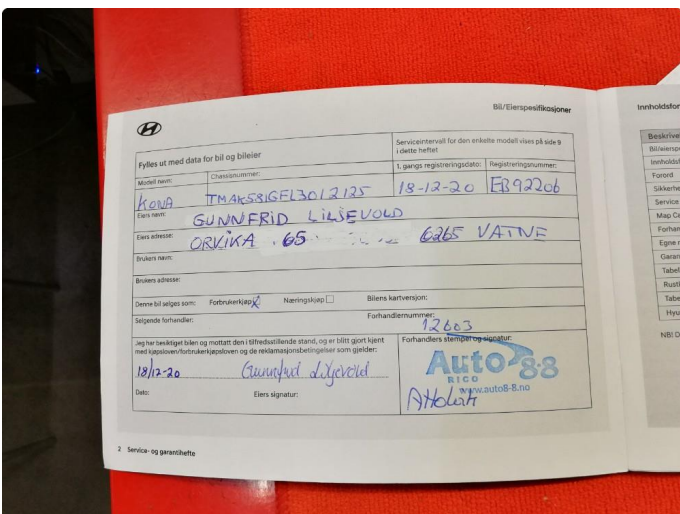 Bil/Eierspesifikasjoner
Fylles ut med data for bil og bileier
Serviceintervall for den enkelte modell vises på side 9
i dette heftet
Modell navn:
Chassisnummer:
1. gangs registreringsdato:
Registreringsnummer:
KONA
TMAK581GFLJ012125
18-12-20
EB92206
Eiers navn:
GUNNFRID LILJEVOLD
Eiers adresse:
ORVIKA 65
6265 VATNE
Brukers navn:
Brukers adresse:
Denne bil selges som:
Forbrukerkjøp
Næringskjøp
Bilens kartversjon:
Selgende forhandler:
Forhandlernummer:
12603
Jeg har besiktiget bilen og mottatt den i tilfredsstillende stand, og er blitt gjort kjent
med kjøpsloven/forbrukerkjøpsloven og de reklamasjonsbetingelser som gjelder:
Forhandlers stempel og signatur:
18/12-20
Gunnfrid Liljevold
Auto 8-8
RICO
www.auto8-8.no
Dato:
Eiers signatur:
2 Service- og garantihefte
Innholdsfor
Beskrive
Bil/eiersp
Innholdsf
Forord
Sikkerhe
Service
Map Ca
Forhan
Egne n
Garan
Tabel
Rust
Tabe
Hyu
NB! D